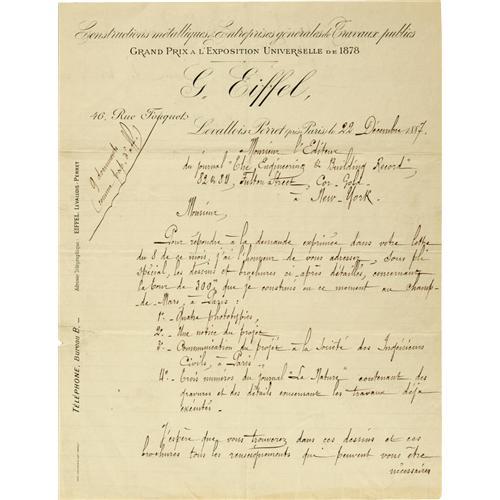 Constructions métalliques, Entreprises générales de Travaux publics
GRAND PRIX A L'EXPOSITION UNIVERSELLE DE 1878
G. Eiffel,
46, Rue Fouquet
Levallois-Perret (près Paris) le 22 Décembre 1887.
Monsieur l'Editeur
du journal "The Engineering & Building Record",
82 & 89, Fulton Street, Cor. Gold
à New-York.
Monsieur,
Pour répondre à la demande exprimée dans votre lettre
du 8 de ce mois, j'ai l'honneur de vous adresser, sous pli
spécial, les dessins et brochures ci-après détaillés, concernant
la tour de 300m que je construis en ce moment au Champ-
de-Mars, à Paris:
1º- Quatre phototypies,
2º- Une notice du projet
3º- Communication du projet à la Société des Ingénieurs
Civils, à Paris,
4º- trois numéros du journal "La Nature" contenant des
gravures et des détails concernant les travaux déjà
exécutés.
J'espère que vous trouverez dans ces dessins et ces
brochures tous les renseignements qui peuvent vous être
nécessaires
Adresse Télégraphique: EIFFEL LEVALLOIS-PERRET
TÉLÉPHONE, Bureau B.